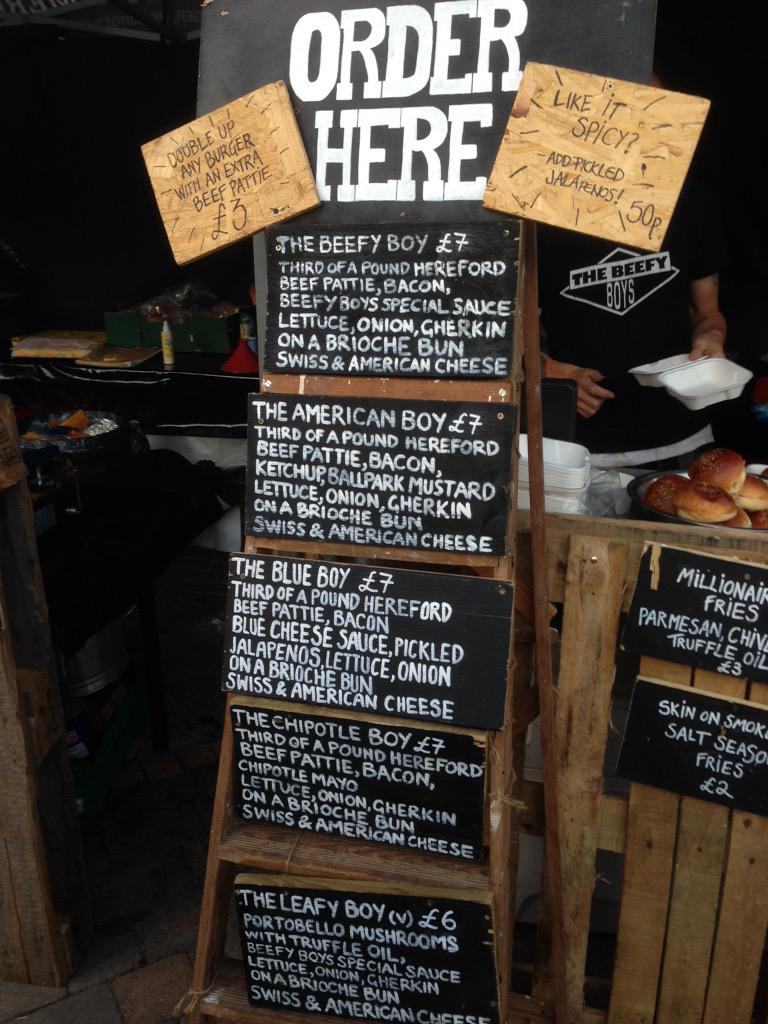 ORDER
HERE
DOUBLE UP
ANY BURGER
WITH AN EXTRA
BEEF PATTIE
£3
LIKE IT
SPICY?
ADD PICKLED
JALAPENOS!
50p
THE BEEFY BOY £7
THIRD OF A POUND HEREFORD
BEEF PATTIE, BACON,
BEEFY BOYS SPECIAL SAUCE
LETTUCE, ONION, GHERKIN
ON A BRIOCHE BUN
SWISS & AMERICAN CHEESE
THE BEEFY
BOYS
THE AMERICAN BOY £7
THIRD OF A POUND HEREFORD
BEEF PATTIE, BACON,
KETCHUP, BALLPARK MUSTARD
LETTUCE, ONION, GHERKIN
ON A BRIOCHE BUN
SWISS & AMERICAN CHEESE
THE BLUE BOY £7
THIRD OF A POUND HEREFORD
BEEF PATTIE, BACON
BLUE CHEESE SAUCE, PICKLED
JALAPENOS, LETTUCE, ONION
ON A BRIOCHE BUN
SWISS & AMERICAN CHEESE
THE CHIPOTLE BOY £7
THIRD OF A POUND HEREFORD
BEEF PATTIE, BACON,
CHIPOTLE MAYO
LETTUCE, ONION, GHERKIN
ON A BRIOCHE BUN
SWISS & AMERICAN CHEESE
THE LEAFY BOY (V) £6
PORTOBELLO MUSHROOMS
WITH TRUFFLE OIL,
BEEFY BOYS SPECIAL SAUCE
LETTUCE, ONION, GHERKIN
ON A BRIOCHE BUN
SWISS & AMERICAN CHEESE
MILLIONAIR
FRIES
PARMESAN, CHIV
TRUFFLE OIL
£3
SKIN ON SMOK
SALT SEASO
FRIES
£2